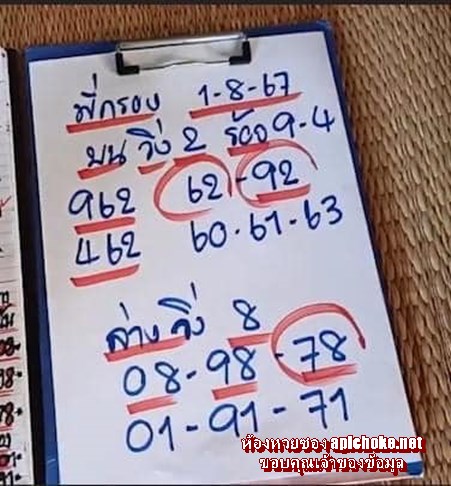 พี่กรอง 1-8-67
บน วิ่ง 2 ร้อย 9-4
962 62-92
462 60-61-63
ล่าง วิ่ง 8
08-98-78
01-91-71
ห้องหวยซอง apichoke.net
ขอบคุณเจ้าของข้อมูล